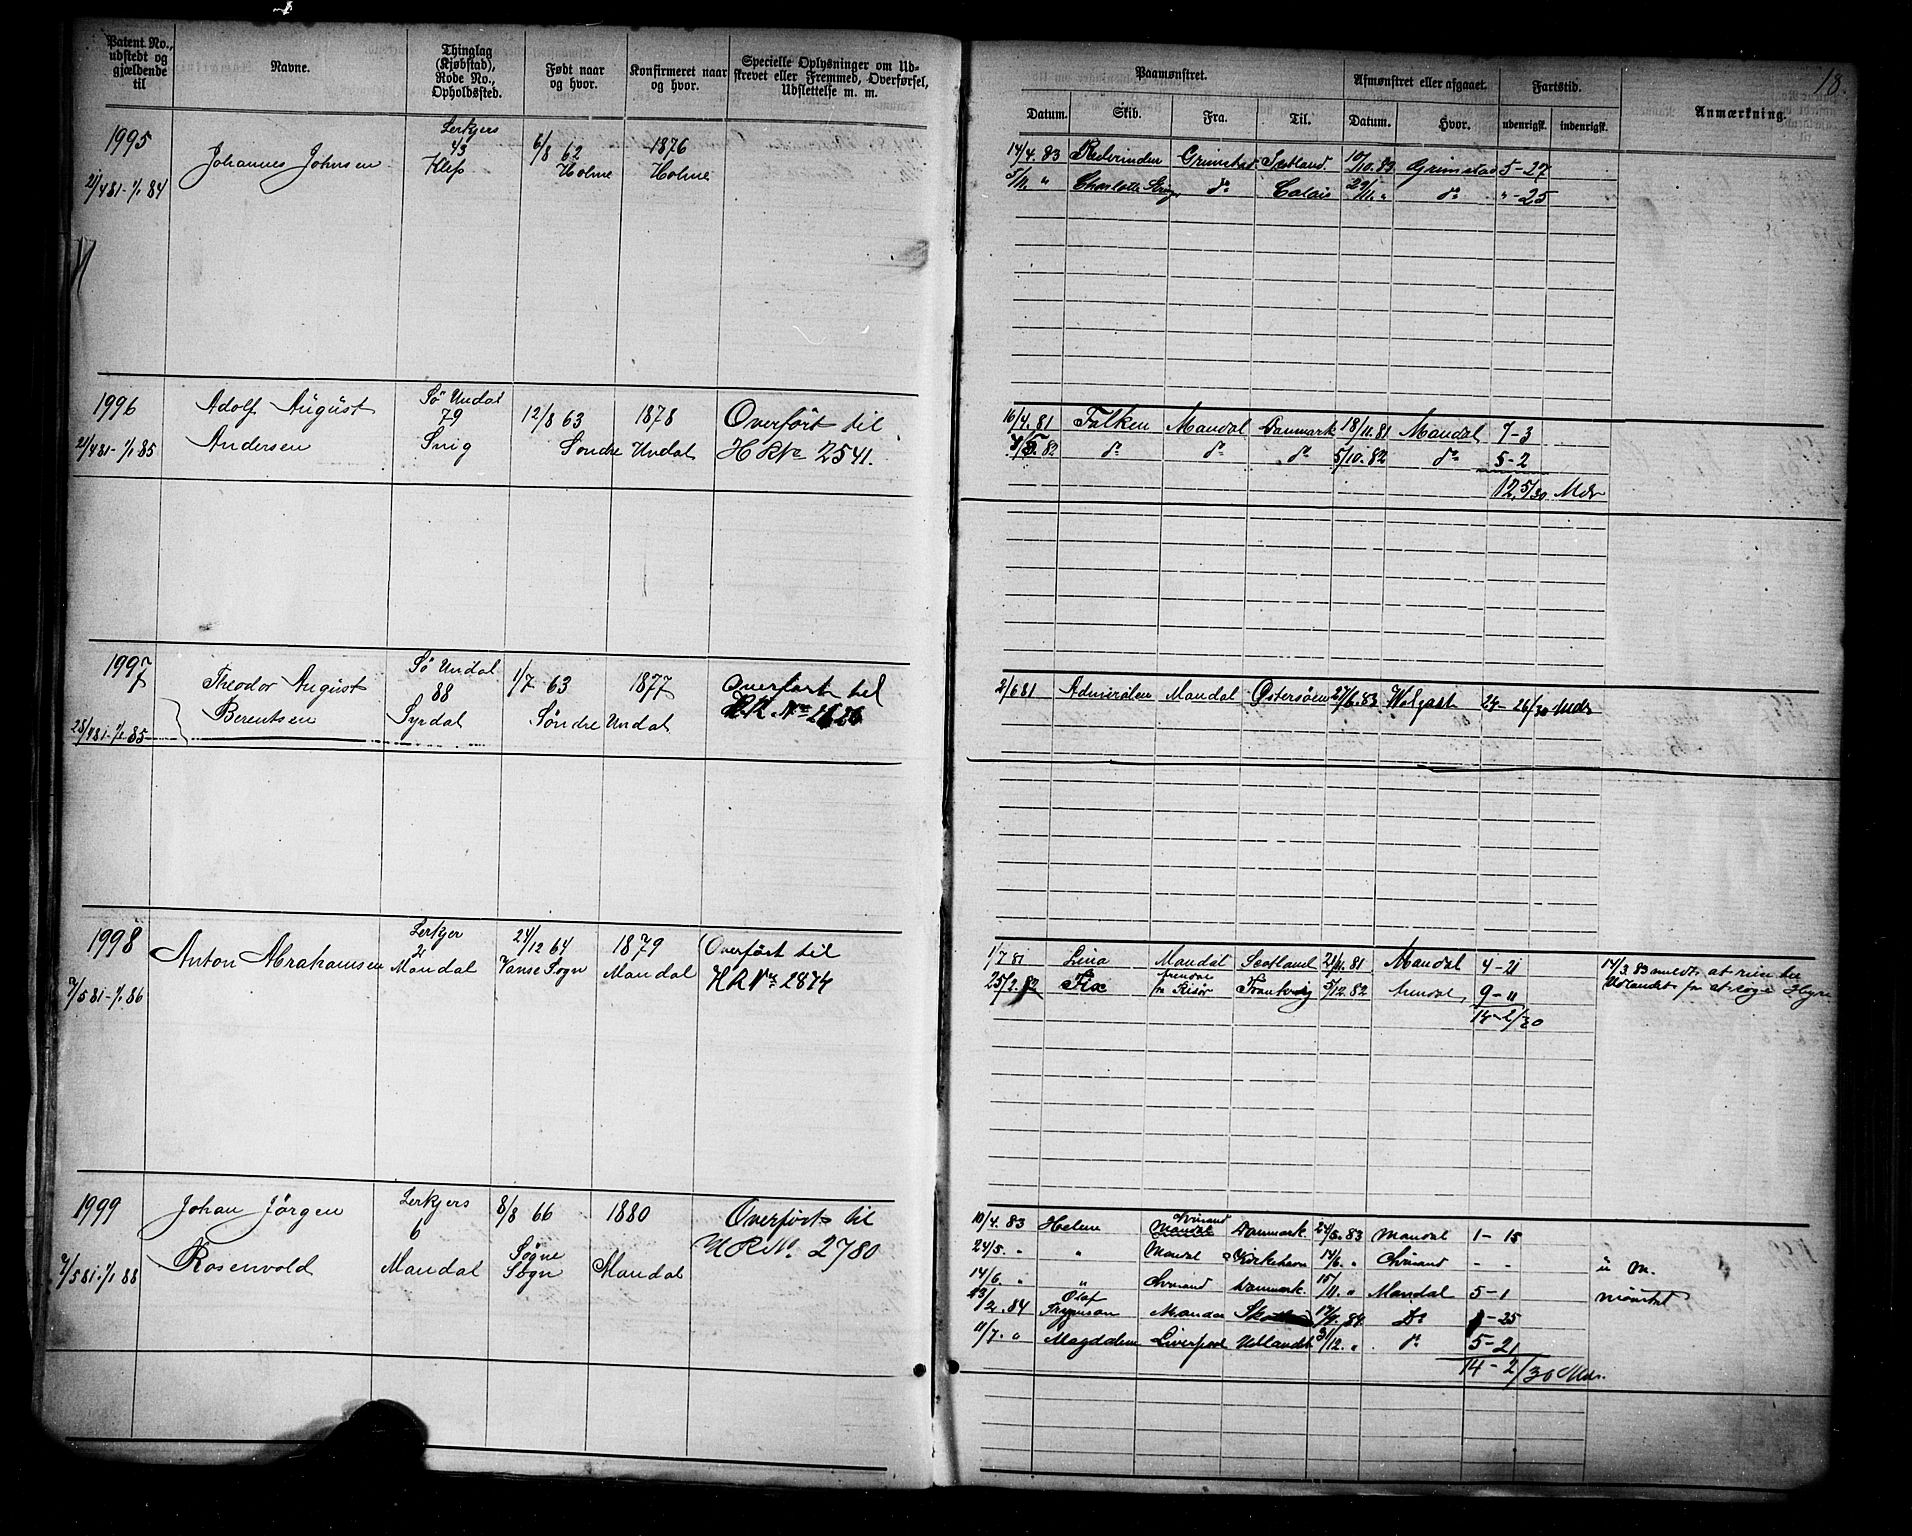 Patent. No., udstedt og gjældende til
Navne.
Thinglag (Kjøbstad), Rode No., Opholdssted.
Født naar og hvor.
Konfirmeret naar og hvor.
Specielle Oplysninger om Udskrevet eller Fremmed, Overførsel, Udslettelse m. m.
Paamønstret.
Afmønstret eller afgaaet.
Fartstid.
Anmærkning.
18.
Datum. Skib. Fra. Til. Datum. Hvor. udenrigsk. indenrigsk.
1995
21/4 81 - 1/1 84
Johannes Johnsen
43
6/8 62
Holme
1876
Holme
14/4. 83 Grimstad Scotland. 10/10. 83 Grimstad 5-27
5/11. " Charlotte do Calais 29/11. " do " - 25
1996
21/4 81 - 1/1 85
Adolf August
Andersen
Sø Undal
79
Snig
12/8 63
1878
Søndre Undal
Overført til
2541.
16/4. 81 Falken Mandal Danmark 18/11. 81 Mandal 7-3
82 do do do 5/10. 82 do 5-2
12, 5/30 Mdr
1997
28/4 81 - 1/1 85
Theodor August
Berentsen
Sø Undal
88
Syrdal
1/7 63
1877
Søndre Undal
Overført til
2/6 81 Admiralen Mandal Østersøen 27/6. 83 Wolgast 24-26/30 Mdr
1998
7/5 81 - 1/1 86
Anton Abrahamsen
2
Mandal
24/12 64
Vanse Sogn
1879
Mandal
Overført til
HR No 2874
1/7 81 Lina Mandal Scotland 21/11. 81 Mandal 4-21
82 Arendal 5/12. 82 Arendal, 9-11
14-2/30
14/3. 83 meldt at
Udlandet for at søge Hyre
1999
7/5 81 - 1/1 88
Johan Jörgen
Rosenvold
6
Mandal
8/8 66
Søgne
Sogn
1880
Mandal
Overført til
2780
10/4. 83 Helene Mandal Danmark 83 Mandal 1-15
24/5. " " Mandal 14/6. " - -
14/6. " " Danmark 15/11. " Mandal 5-1
mönstret
84 Olaf Do -25
11/7. " Magdalene Liverpool Udlandet 3/12. " do 5-21
14-2/30 Mdr.